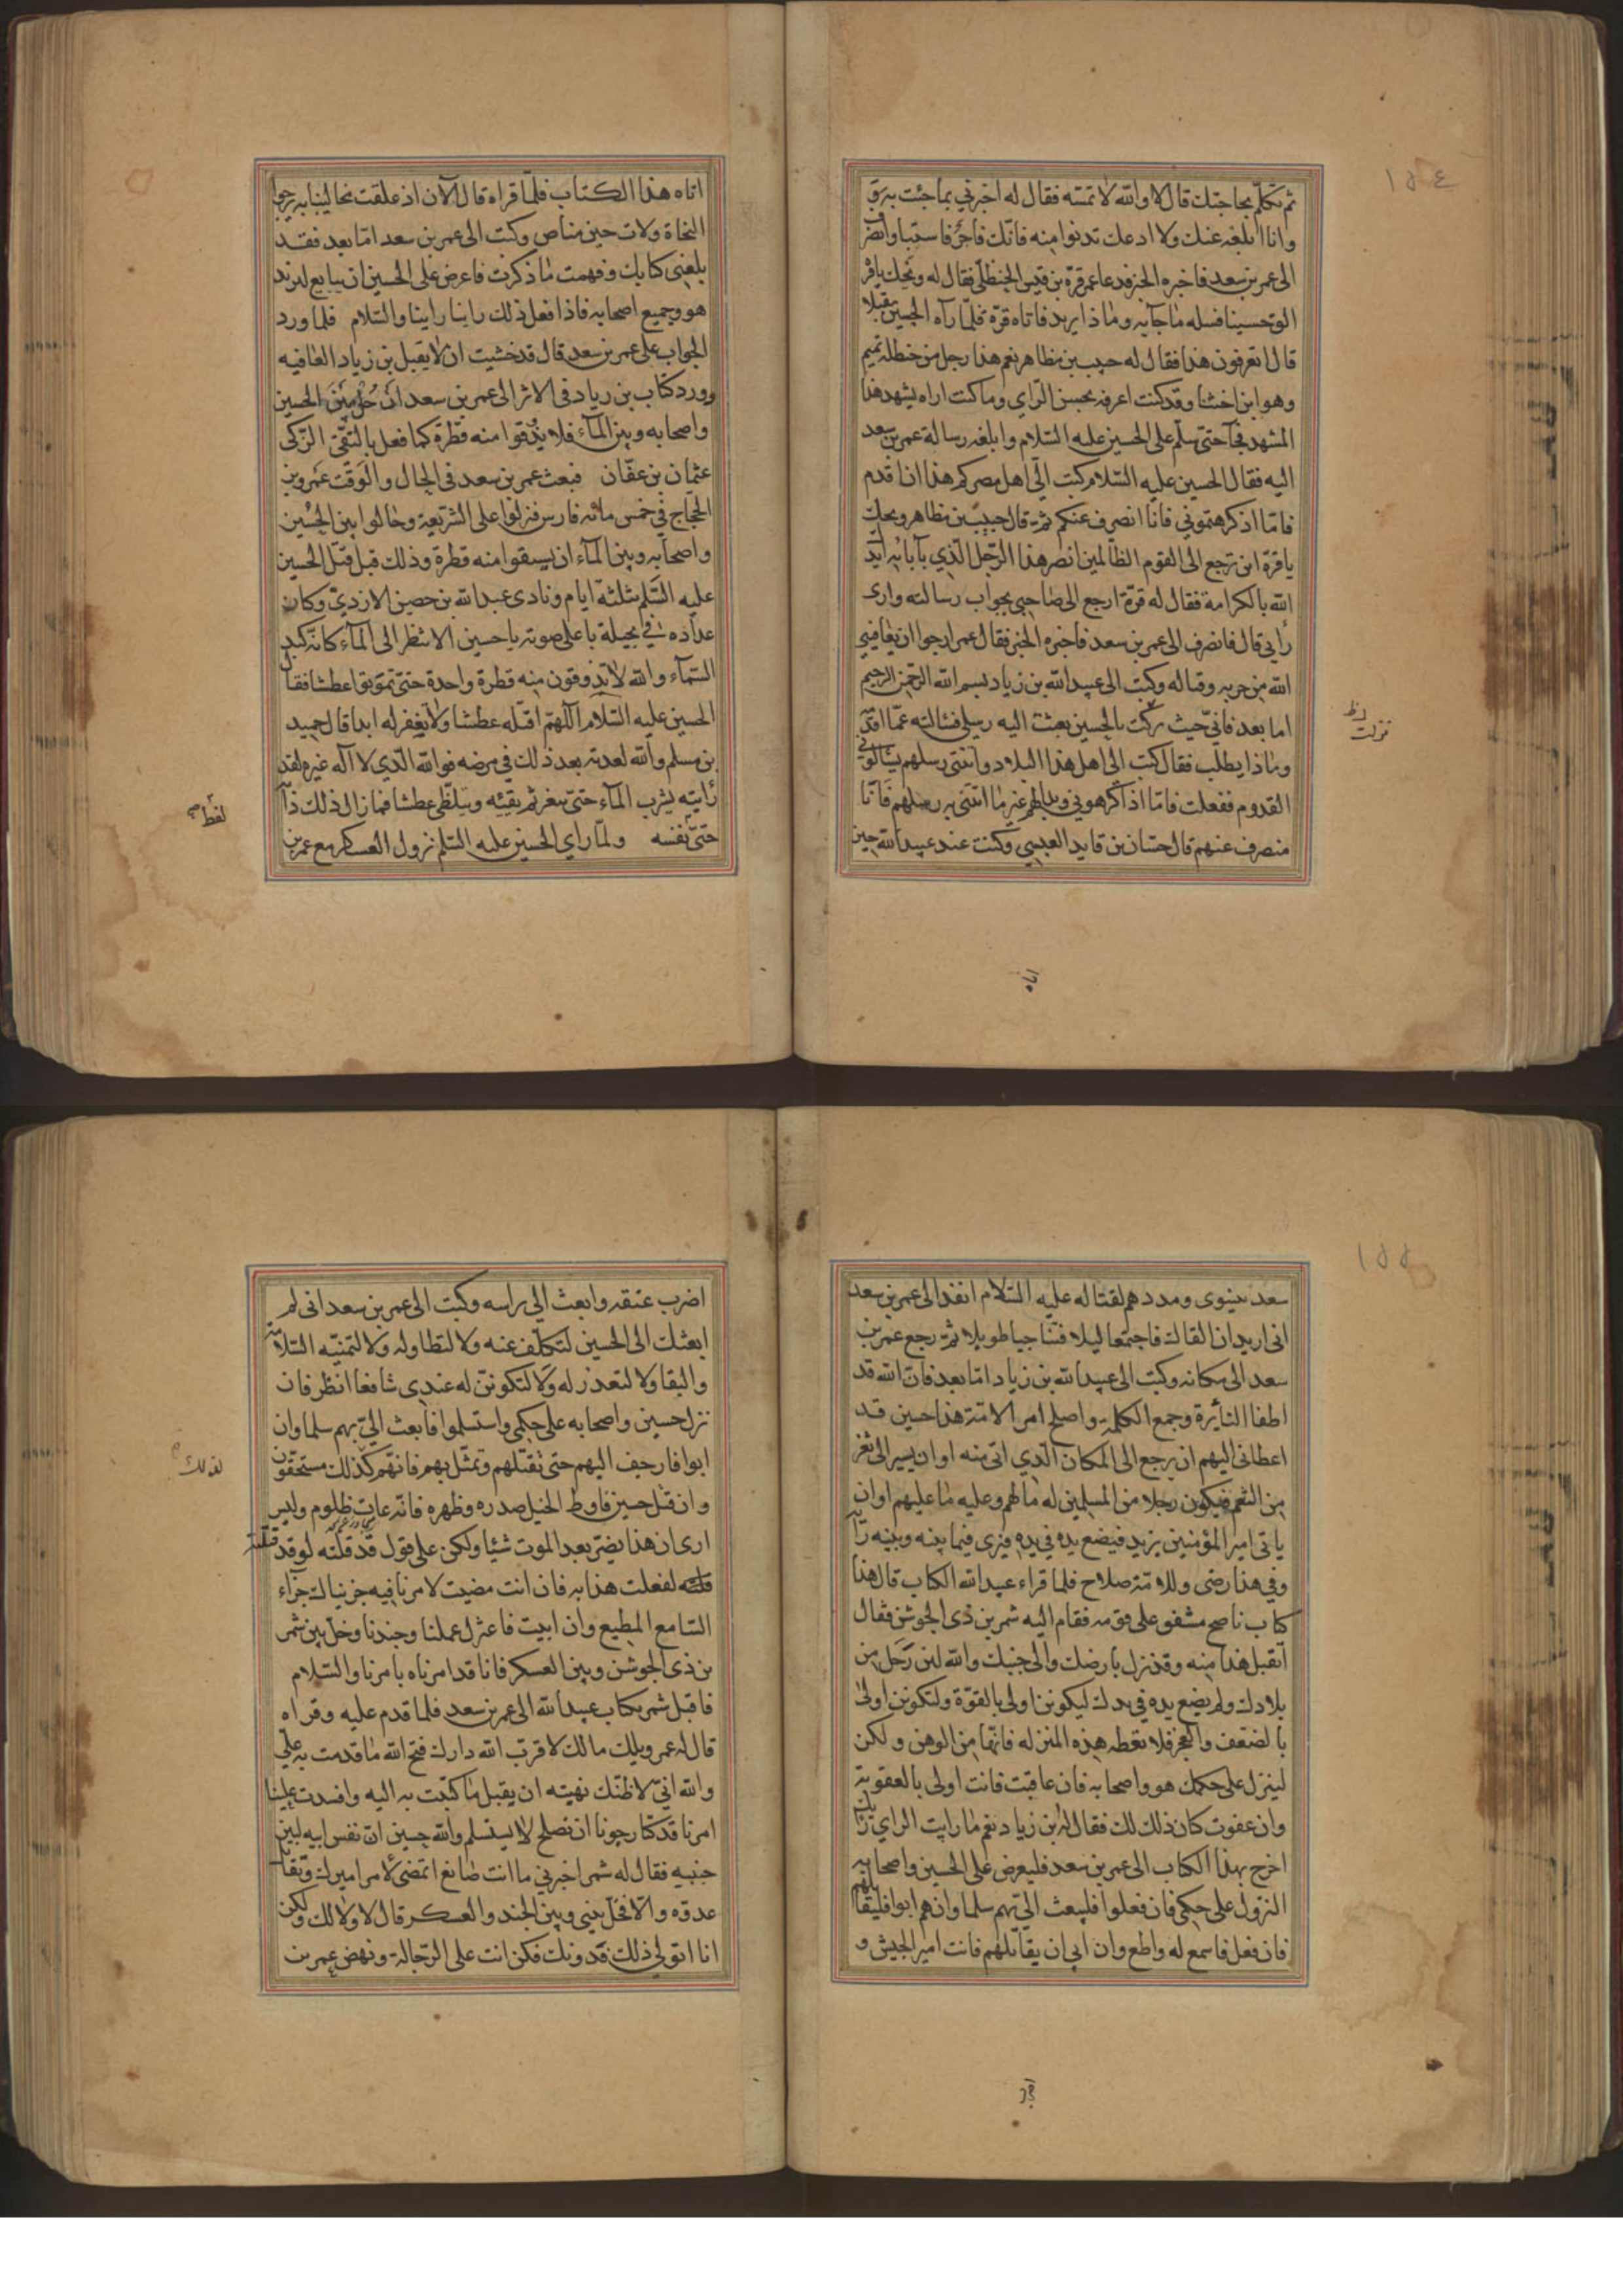 ١٥٤
ثم تكلم بحاجتك قال لا والله لا تمسه فقال له اخبرني بما جئت به
وانا ابلغه عنك ولا ادعك تدنوا منه فانك فاجر فاستبا وانصرف
الى عمر بن سعد فاخبره الخبر فدعا عمر قرة بن قيس الحنظلي فقال له ويحك يا قرة
الق حسينا فسله ما جآء به وماذا يريد فاتاه قرة فلما رآه الحسين مقبلا
قال اتعرفون هذا فقال له حبيب بن مظاهر نعم هذا رجل من حنظلة تميم
وهو ابن اختنا وقد كنت اعرفه بحسن الراي وما كنت اراه يشهد هذا
المشهد فجآء حتى سلم على الحسين عليه السلام وابلغه رسالة عمر بن سعد
اليه فقال الحسين عليه السلام كتب الي اهل مصركم هذا ان اقدم
فاما اذ كرهتموني فانا انصرف عنكم ثم قال حبيب بن مظاهر ويحك
يا قرة اين ترجع الى القوم الظالمين انصر هذا الرجل الذي بآبائه ايد
الله بالكرامة فقال له قرة ارجع الى صاحبي بجواب رسالته وارى
رايي قال فانصرف الى عمر بن سعد فاخبره الخبر فقال عمر ارجوا ان يعافيني
الله من حربه وقتاله وكتب الى عبيد الله بن زياد بسم الله الرحمن الرحيم
اما بعد فاني حيث نزلت بالحسين بعثت اليه رسلي فسالته عما اقدمه
وماذا يطلب فقال كتب الي اهل هذا البلاد واتتني رسلهم يسالوني
القدوم ففعلت فاما اذ اكرهوني وبدالهم غير ما اتتني به رسلهم فانا
منصرف عنهم قال حسان بن قايد العبسي وكنت عند عبيد الله حين
نزلت ظ
اتاه
اتاه هذا الكتاب فلما قراه قال الآن اذ علقت مخالبنا به يرجوا
النجاة ولات حين مناص وكتب الى عمر بن سعد اما بعد فقد
بلغني كتابك وفهمت ما ذكرت فاعرض على الحسين ان يبايع ليزيد
هو وجميع اصحابه فاذا فعل ذلك راينا راينا والسلام فلما ورد
الجواب على عمر بن سعد قال قد خشيت ان لا يقبل بن زياد العافيه
وورد كتاب بن زياد في الاثر الى عمر بن سعد ان حل بين الحسين
واصحابه وبين المآء فلا يذوقوا منه قطرة كما فعل بالتقي الزكي
عثمان بن عفان فبعث عمر بن سعد في الحال والوقت عمرو بن
الحجاج في خمس مائه فارس فنزلوا على الشريعة وحالوا بين الحسين
واصحابه وبين المآء ان يسقوا منه قطرة وذلك قبل قتل الحسين
عليه السلم بثلثة ايام ونادى عبد الله بن حصين الازدي وكان
عداده في بجيلة باعلى صوته يا حسين الا تنظر الى المآء كانه كبد
السمآء والله لا تذوقون منه قطرة واحدة حتى تموتوا عطشا فقال
الحسين عليه السلام اللهم اقتله عطشا ولا يغفر له ابدا قال حميد
بن مسلم والله لعدته بعد ذلك في مرضه فوالله الذي لا اله غيره لقد
رايته يشرب المآء حتى يبغر ثم يقيئه ويتلظى عطشا فما زال ذلك ذا
حتى نفسه ولما راي الحسين عليه السلم نزول العسكر مع عمر بن
لفظ
١٥٥
سعد بنينوى ومددهم لقتاله عليه السلام انفذ الى عمر بن سعد
اني اريد ان القاك فاجتمعا ليلا فتناجيا طويلا ثم رجع عمر بن
سعد الى مكانه وكتب الى عبيد الله بن زياد اما بعد فان الله قد
اطفا النآيرة وجمع الكلمة واصلح امر الامة هذا حسين قد
اعطاني اليهم ان يرجع الى المكان الذي اتى منه او ان يسير الى ثغر
من الثغر فيكون رجلا من المسلمين له ما لهم وعليه ما عليهم او ان
ياتي امير المؤمنين يزيد فيضع يده في يده فيرى فيما بينه وبينه رايه
وفي هذا رضى وللامة صلاح فلما قراء عبيد الله الكتاب قال هذا
كتاب ناصح مشفق على قومه فقام اليه شمر بن ذي الجوشن فقال
اتقبل هذا منه وقد نزل بارضك والى جنبك والله لئن رحل من
بلادك ولم يضع يده في يدك ليكونن اولى بالقوة ولتكونن اولى
بالضعف والعجز فلا تعطه هذه المنزله فانها من الوهن ولكن
لينزل على حكمك هو واصحابه فان عاقبت فانت اولى بالعقوبة
وان عفوت كان ذلك لك فقال له بن زياد نعم ما رايت الراي رايك
اخرج بهذا الكتاب الى عمر بن سعد فليعرض على الحسين واصحابه
النزول على حكمي فان فعلوا فليبعث الي بهم سلما وان هم ابوا فليقاتلهم
فان فعل فاسمع له واطع وان ابى ان يقاتلهم فانت امير الجيش و
اضرب عنقه وابعث الي براسه وكتب الى عمر بن سعد اني لم
ابعثك الى الحسين لتكلف عنه ولا لتطاوله ولا لتمنيه السلامة
والبقا ولا لتعذر له ولا لتكونن له عندي شافعا انظر فان
نزل حسين واصحابه على حكمي واستسلموا فابعث الي بهم سلما وان
ابوا فازحف اليهم حتى تقتلهم وتمثل بهم فانهم كذلك مستحقون
وان قتل حسين فاوط الخيل صدره وظهره فانه عات ظلوم وليس
ارى ان هذا يضر بعد الموت شيئا ولكن على قول قد قلته لو قد قتلته
لفعلت هذا به فان انت مضيت لامرنا فيه جزيناك جزآء
السامع المطيع وان ابيت فاعتزل عملنا وجندنا وخل بين شمر
بن ذي الجوشن وبين العسكر فانا قد امرناه بامرنا والسلام
فاقبل شمر بكتاب عبيد الله الى عمر بن سعد فلما قدم عليه وقراه
قال له عمر ويلك مالك لا قرب الله دارك قبح الله ما قدمت به علي
والله اني لاظنك نهيته ان يقبل ما كتبت به اليه وافسدت علينا
امرنا قد كنا رجونا ان نصلح لا يستسلم والله حسين ان نفس ابيه لبين
جنبيه فقال له شمر اخبرني ما انت صانع اتمضي لامر اميرك وتقاتل
عدوه والا فخل بيني وبين الجند والعسكر قال لا ولا لك ولكن
انا اتولى ذلك فدونك فكن انت على الرجالة ونهض عمر بن
لذلك